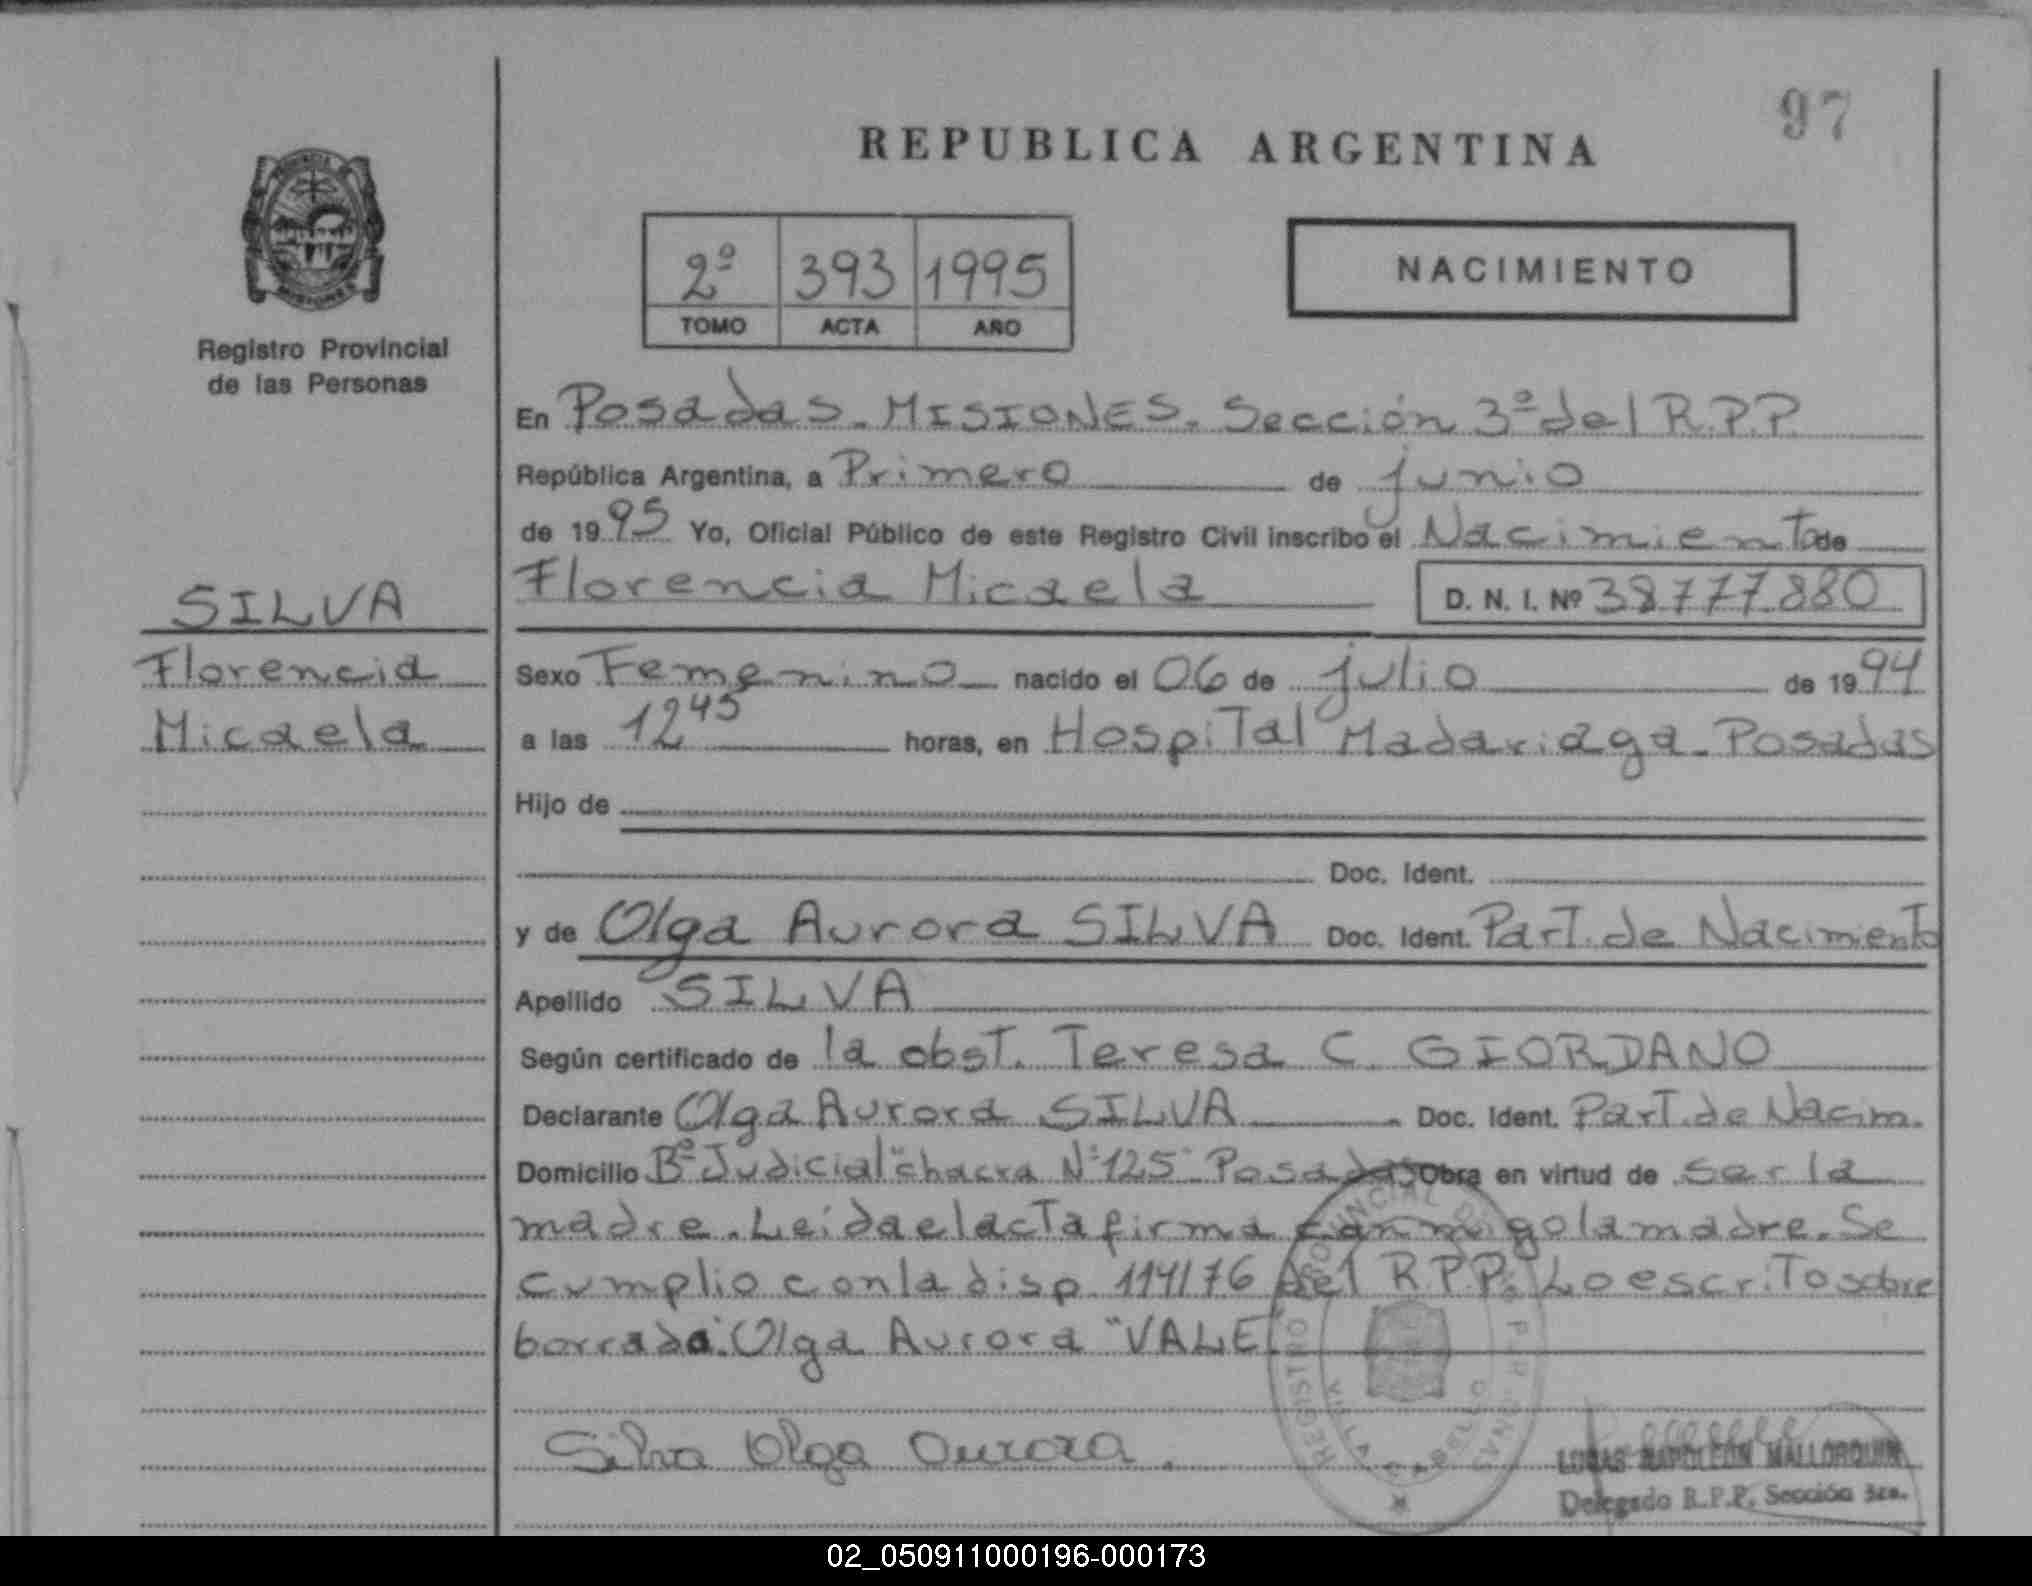 97
REPUBLICA ARGENTINA
2º 393 1995
TOMO ACTA AÑO
NACIMIENTO
Registro Provincial
de las Personas
En Posadas. MISIONES. Sección 3ª del R.P.P.
República Argentina, a Primero de junio
de 1995 Yo, Oficial Público de este Registro Civil inscribo el Nacimiento de
Florencia Micaela D. N. I. Nº 38777.880
SILVA
Florencia
Micaela
Sexo Femenino nacido el 06 de julio de 1994
a las 12 45 horas, en Hospital Madariaga. Posadas
Hijo de
Doc. Ident.
y de Olga Aurora SILVA Doc. Ident. Part. de Nacimiento
Apellido SILVA
Según certificado de la obst. Teresa C. GIORDANO
Declarante Olga Aurora SILVA Doc. Ident. Part. de Nacim.
Domicilio Bº Judicial "chacra Nº 125" Posadas Obra en virtud de ser la
madre. Leida el acta firma conmigo la madre. Se
cumplio con la disp. 114/76 del R.P.P. Lo escrito sobre
borrado: Olga Aurora "VALE"
Silva Olga Aurora.
REGISTRO PROVINCIAL DE LAS PERSONAS
VILLA CABELLO
LUCAS NAPOLEON MALLORQUIN
Delegado R.P.P. Sección 3ra.
02_050911000196-000173